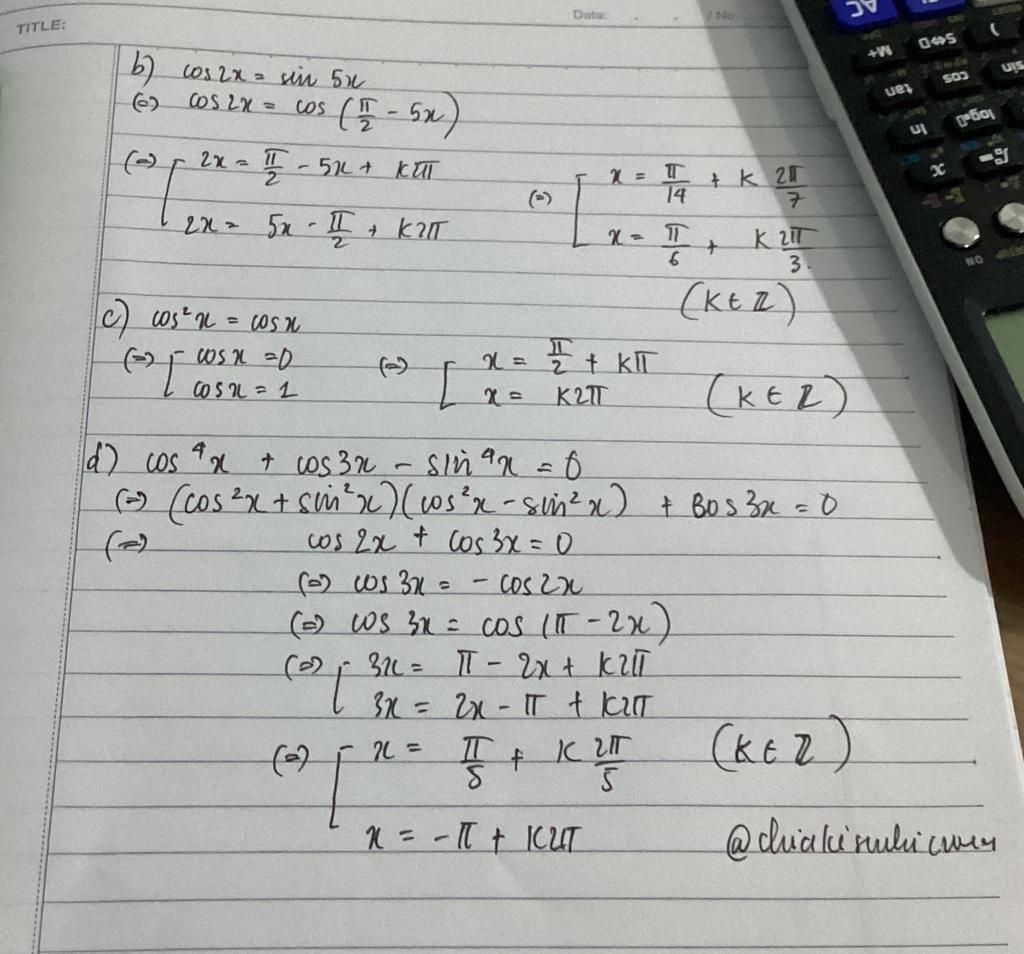 TITLE:
Date: . . / No
b) cos2x = sin 5x
(=) cos2x = cos (π/2 - 5x)
(=) [ 2x = π/2 - 5x + k2π
2x = 5x - π/2 + k2π
(=) [ x = π/14 + k 2π/7
x = π/6 + k 2π/3.
(k ∈ Z)
c) cos²x = cosx
(=) [ cosx = 0
cosx = 1
(=) [ x = π/2 + kπ
x = k2π (k ∈ Z)
d) cos⁴x + cos3x - sin⁴x = 0
(=) (cos²x + sin²x)(cos²x - sin²x) + cos3x = 0
(=) cos 2x + cos 3x = 0
(=) cos 3x = - cos2x
(=) cos 3x = cos (π - 2x)
(=) [ 3x = π - 2x + k2π
3x = 2x - π + k2π
(=) [ x = π/5 + k 2π/5 (k ∈ Z)
x = -π + k2π
AC
M+
S⇔D
)
tan
cos
sin
ln
log
x
ON